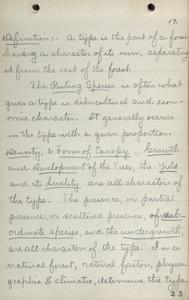 17.
Definition:- A type is the part of a forest
having a character of its own, separating
it from the rest of the forest.
The Ruling Species is often what
gives a type its silvicultural and econ-
omic character. It generally occurs
in the type with a given proportion.
Density, & Form of Canopy, Growth
and Development of the Trees, the Yield
and its Quality are all characters of
the type. The presence, or partial
presence, or scattered presence, of sub-
ordinate species, and the undergrowth,
are all characters of the type. In a
natural forest, natural factors, physio-
graphic & climatic, determine the type
23